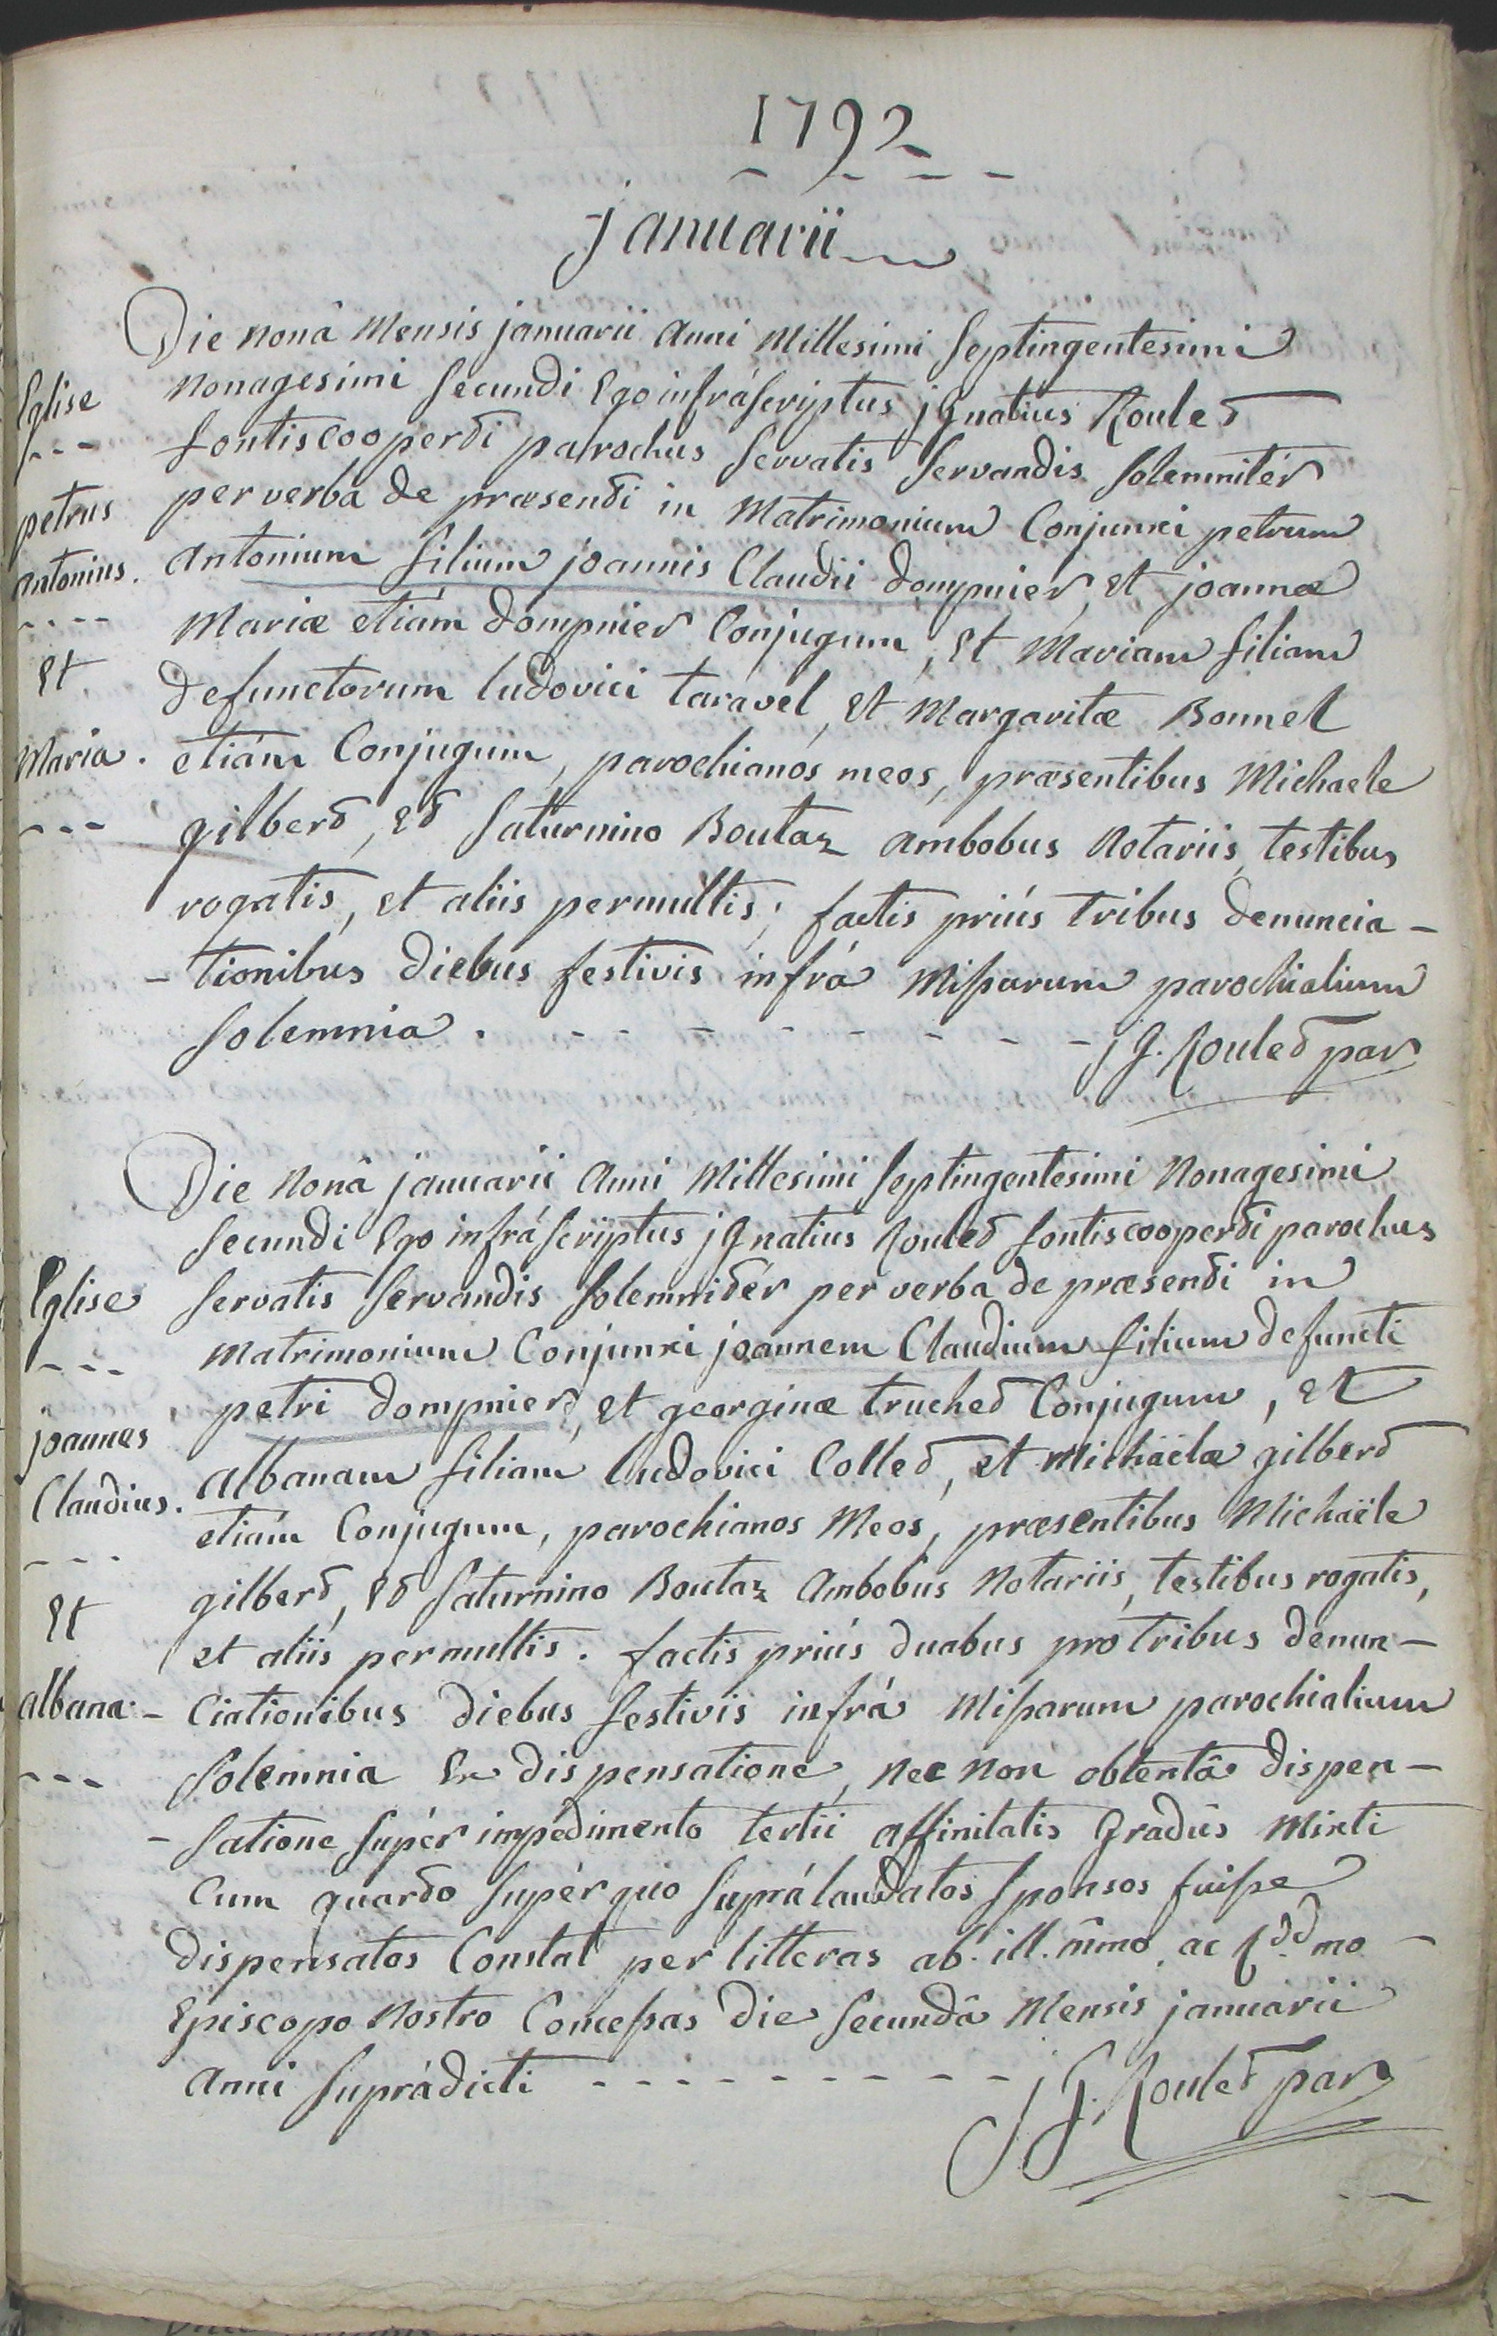 1792
januarii
Die nonâ Mensis januarii anni Millesimi Septingentesimi
Eglise
nonagesimi Secundi Ego infráscriptus jgnatius Roulet
fontiscooperti parochus Servatis Servandis Solemnitér
petrus
per verba de præsenti in Matrimonium Conjunxi petrum
antonius.
antonium filium joannis Claudii dompnier, et joannæ
Mariæ etiám dompnier Conjugum, et Mariam filiam
Et
defunctorum ludovici taravel, et Margaritæ Bonnel
Maria.
etiám Conjugum, parochianos meos, præsentibus Michaele
gilbert, et Saturnino Boutaz ambobus Notariis, testibus
rogatis, et aliis permultis; factis priús tribus denuncia-
-tionibus diebus festivis infrá Missarum parochialium
Solemnia. - - - - - - - - jg. Roulet par
Die nonâ januarii anni Millesimi Septingentesimi Nonagesimi
Secundi Ego infráscriptus jgnatius Roulet fontiscooperti parochus
Eglise
Servatis Servandis Solemnitér per verba de præsenti in
Matrimonium Conjunxi joannem Claudium filium defuncti
joannes
petri dompnier, et georginæ truchet Conjugum, et
Claudius.
albanam filiam ludovici Collet, et Michaëlæ gilbert
etiám Conjugum, parochianos Meos, præsentibus Michaële
Et
gilbert, et Saturnino Boutaz Ambobus Notariis, testibus rogatis,
et aliis permultis. factis priús duabus pro tribus denun-
albana.
-Ciationibus diebus festivis infrá Missarum parochialium
Solemnia Ex dispensatione, nec non obtentâ dispen-
-satione Supér impedimento tertii affinitatis Gradûs Mixti
Cum quarto Supér quo Suprálaudatos Sponsos fuisse
dispensatos Constat per litteras ab ill.mmo ac Rdd.mo
Episcopo Nostro Concessas die Secundâ Mensis januarii
anni Suprádicti - - - - - - - - jg. Roulet par